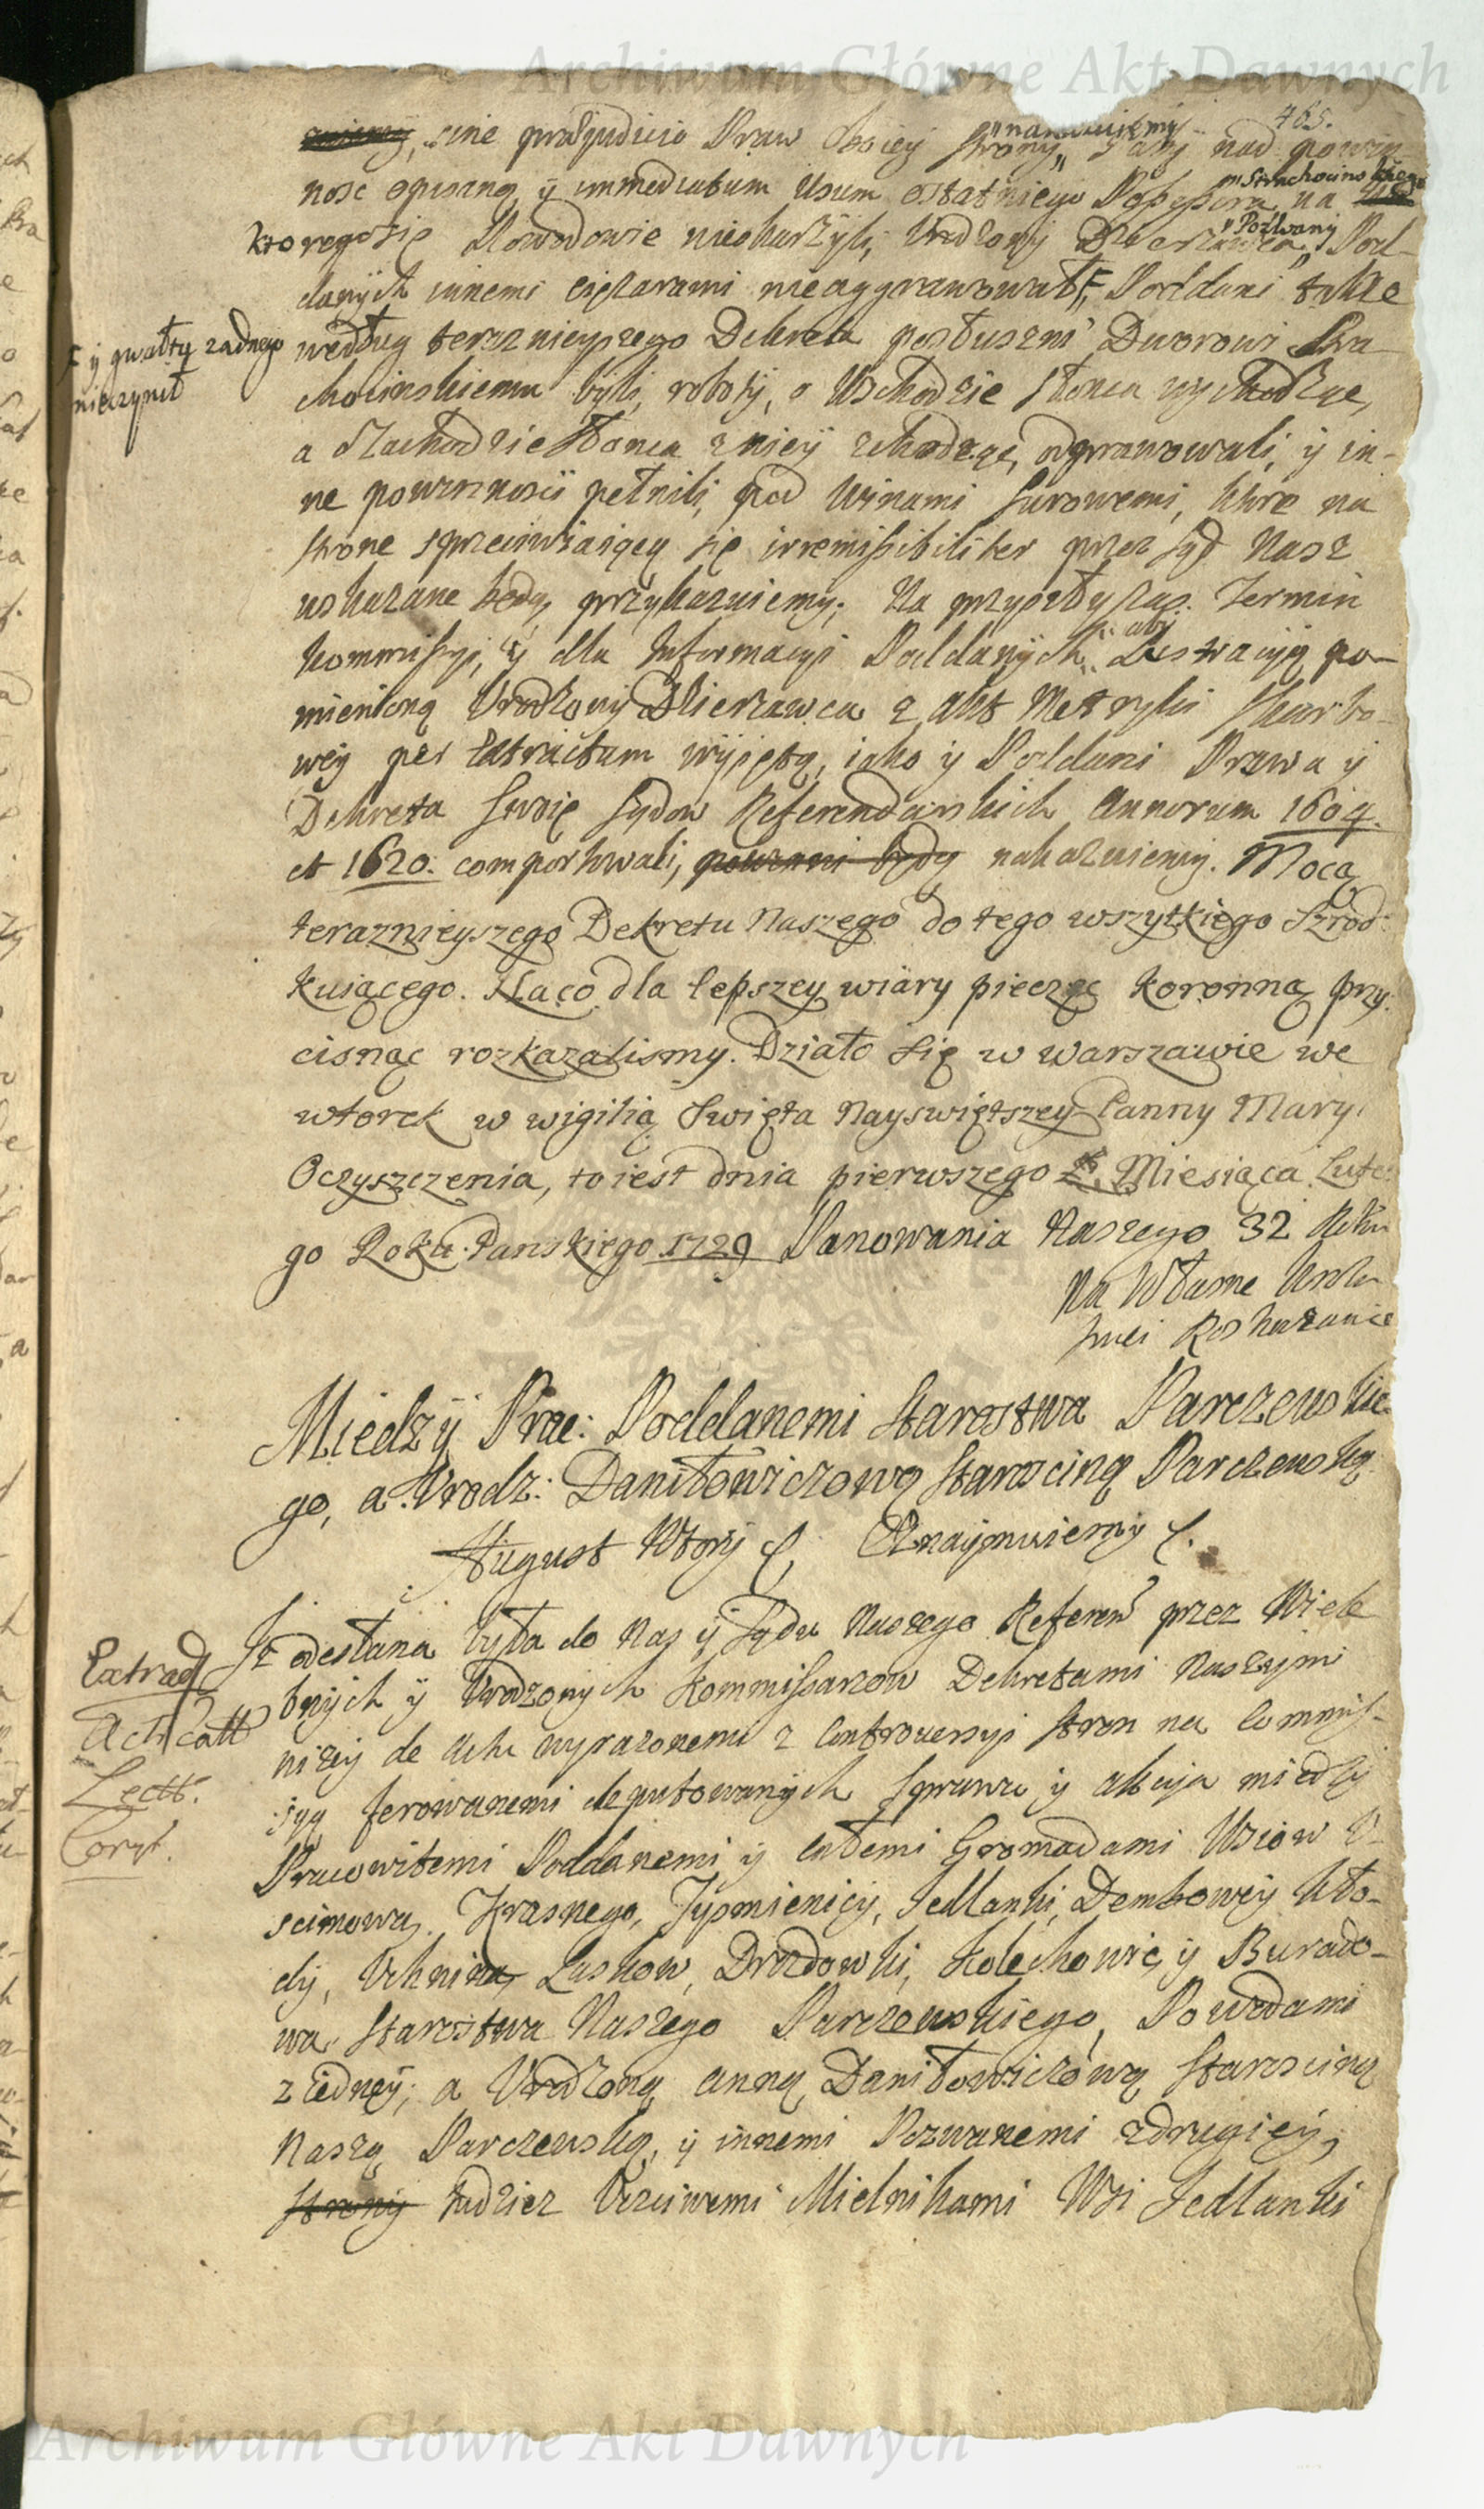 Archiwum Główne Akt Dawnych
465.
"nakazuiemy
sine præjudicio Praw obojey strony, Pany nad powin-
"Strachocinskiego
nosc opisaną y immediatum Usum ostatniego Possessora na
"Pozwany
ktorego się Powodowie nieskarżyli, Urodzony Dzierzawca, Pod-
danych innemi ciężarami nieaggrawował, Poddani także
F y gwałtu żadnego
nieczynił
według teraznieyszego Dekretu posłuszni Dworowi Stra-
chocinskiemu byli, roboty, o Wschodzie słonca wychodząc,
a o Zachodzie słonca z niey schodząc, odprawowali, y in-
ne powinnosci pełnili, pod Winami surowemi, ktore na
stronę sprzeciwiaiącą się irremissibiliter przez Sąd Nasz
wskazane będą, przykazuiemy; Na przyszły zas Termin
Kommissyi, y dla Informacyi Poddanych, aby Lustracyią po-
mienioną Urodzony Dzierzawca z Akt Metryki Skarbo-
wey per Extractum wyiętą, iako y Poddani Prawa y
Dekreta swoie Sądow Referendarskich Annorum 1604.
et 1620. comportowali, powinni będą nakazuiemy. Mocą
teraznieyszego Dekretu Naszego do tego wszytkiego szrod-
kuiącego. Na co dla lepszey wiary pieczęć Koronną przy-
cisnąc rozkazalismy. Działo się w Warszawie we
wtorek w wigilią Swięta Nayswiętszey Panny Mary
Oczyszczenia, to iest dnia pierwszego Miesiąca Lute-
go Roku Panskiego 1729 Panowania Naszego 32 Roku
Na Własne Krole-
skiei Roskazanie
Miedzy Prac: Poddanemi Starostwa Parczewskie-
go, a Urodz: Daniłowiczową Starościną Parczewską
August Wtory &, Oznaymuiemy &.
Extrad
Act Catt
Lectt.
Coryt.
Iż odesłana była do Nas y Sądu Naszego Referen przez Wiel-
bnych y Urodzonych Kommissarzow Dekretami Naszymi
niżey de Actu wyrażonemi z Controwersyi stron na Commis-
syą ferowanemi deputowanych sprawa y akcyia miedzy
Pracowitemi Poddanemi y całemi Gromadami Wsiow U-
scimowa, Krasnego, Tysmienicy, Jedlanki, Dembowey Kło-
dy, Uhnina, Laskow, Drozdowki, Kolechowic, y Burado-
wa Starostwa Naszego Parczewskiego, Powodami
z iedney; a Urodzoną Anną Daniłowiczową Starosciną
Naszą Parczewską, y innemi Pozwanemi zdrugiey,
strony tudziez Uczciwemi Mielnikami Wsi Jedlanki
Archiwum Główne Akt Dawnych